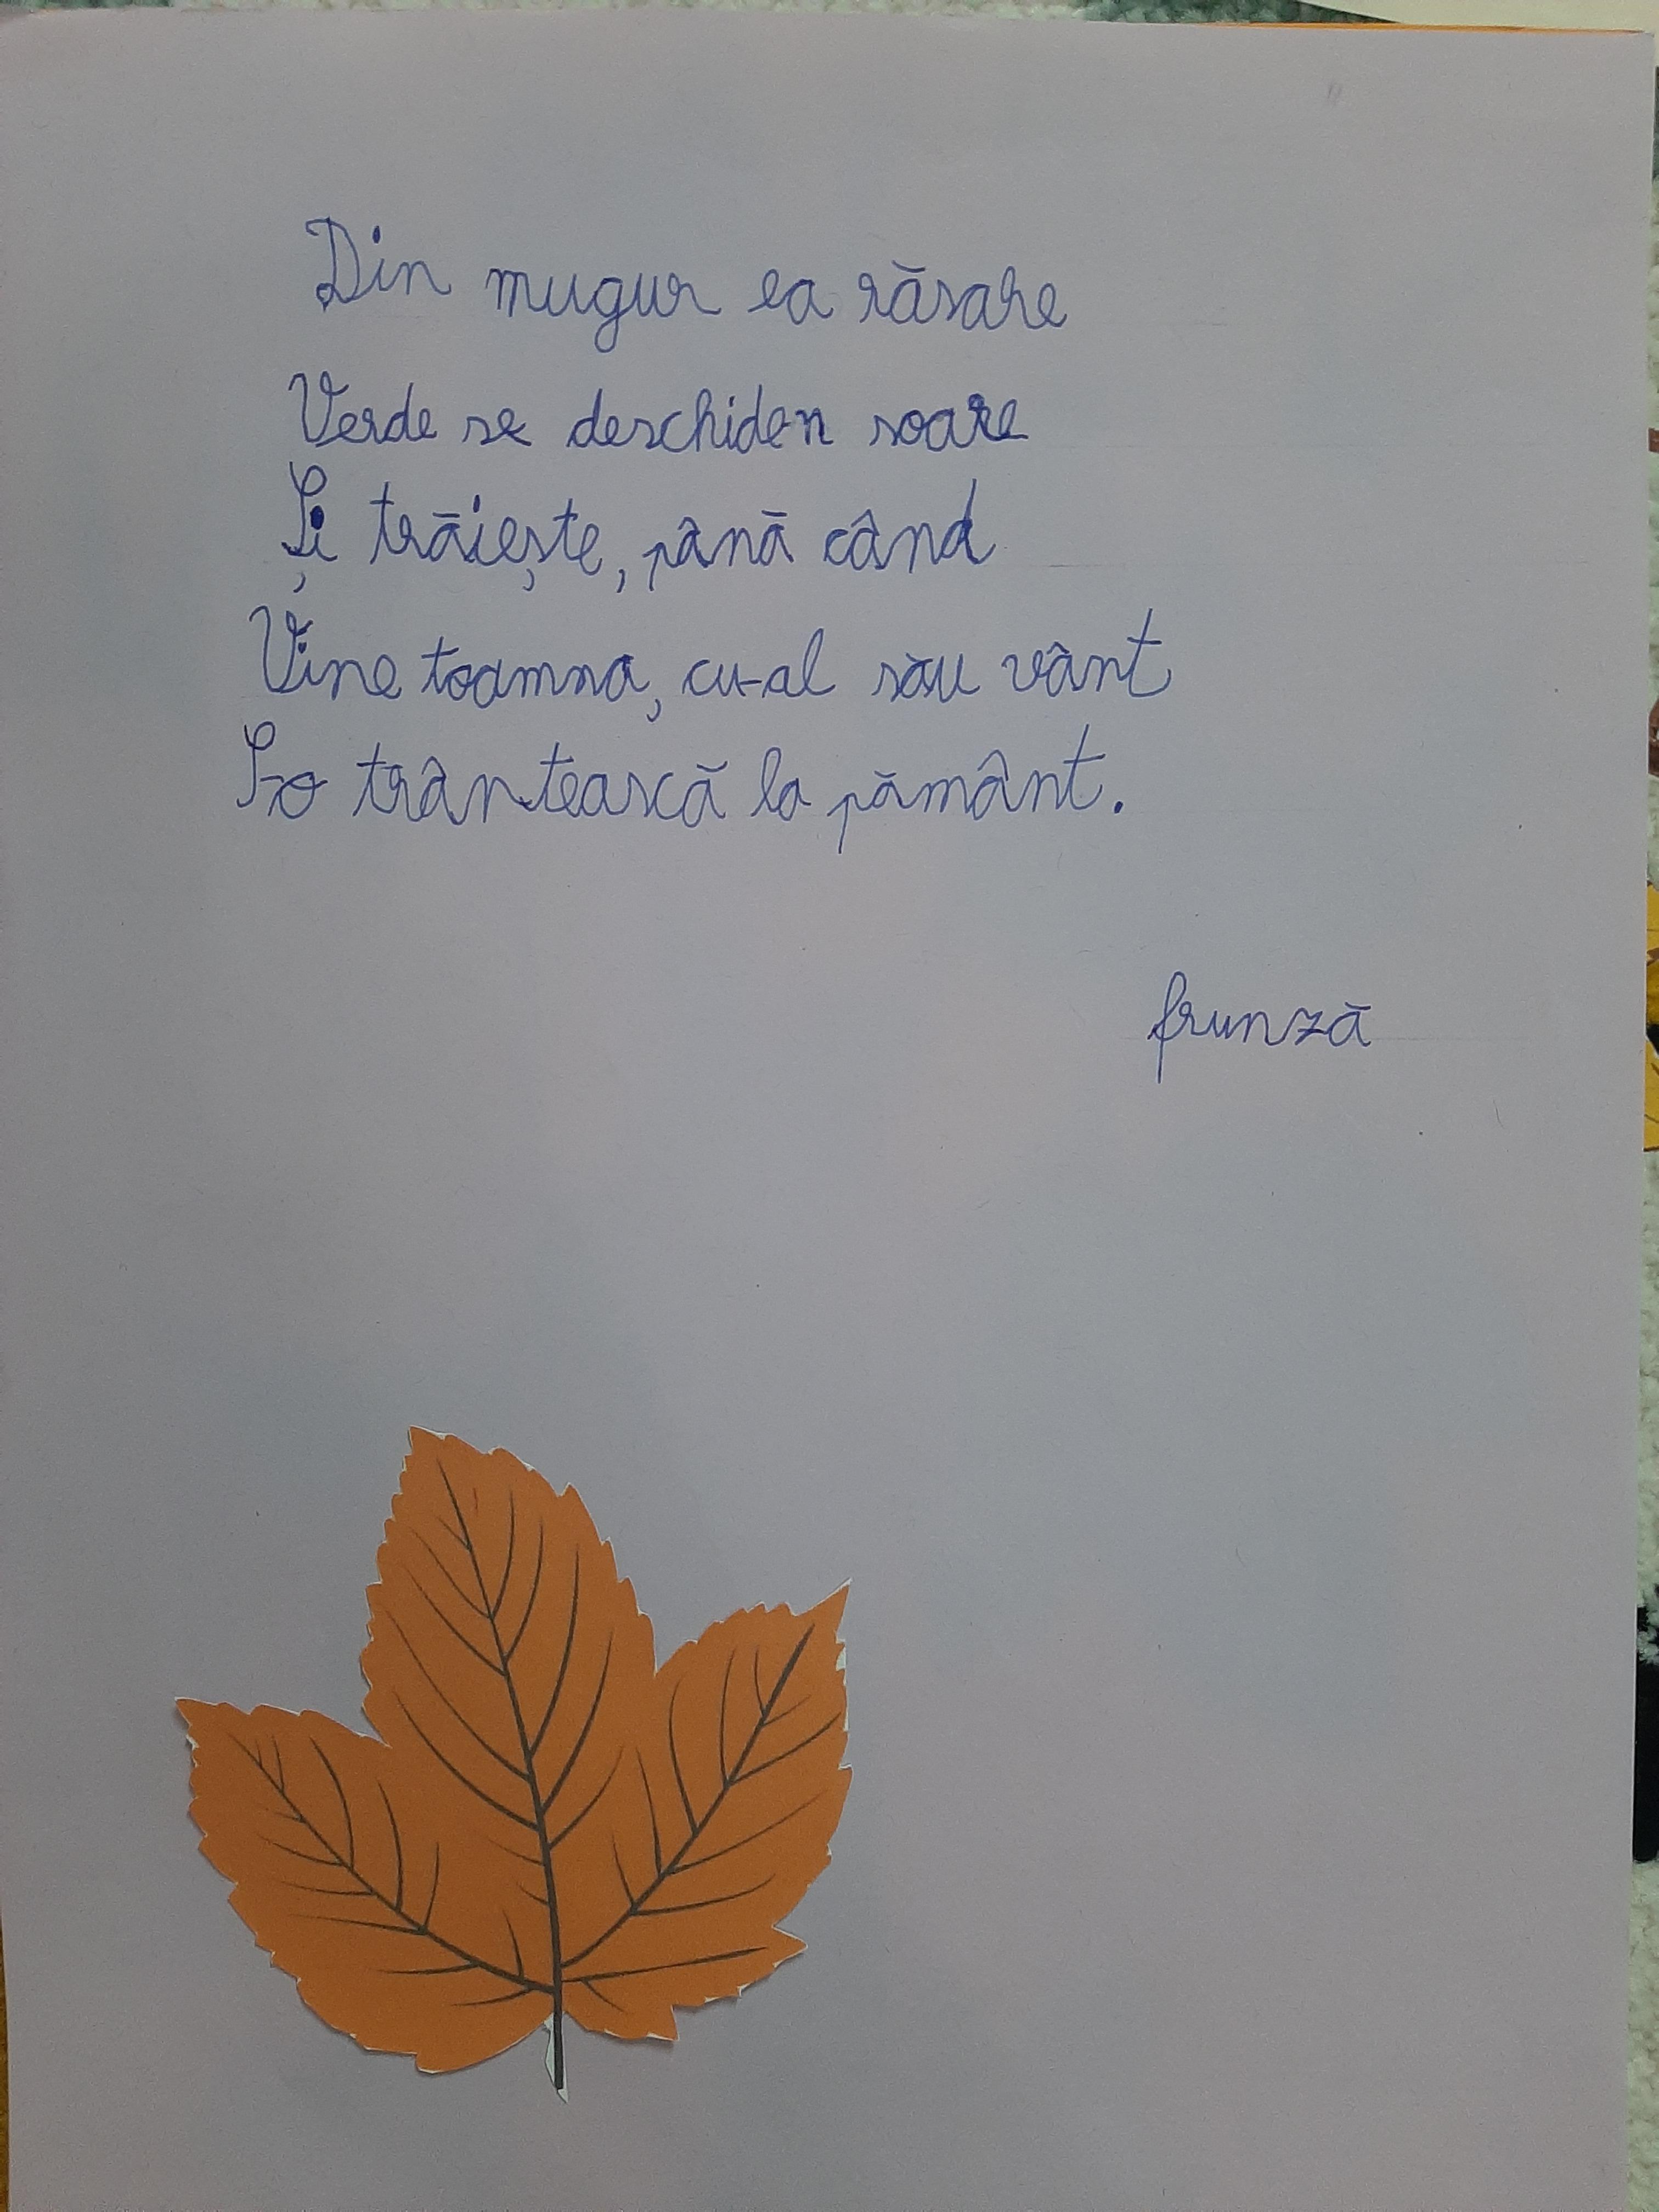 Din mugur ea răsare
Verde se deschiden soare
Și trăiește, până când
Vine toamna, cu-al său vânt
S-o trântească la pământ.
frunză